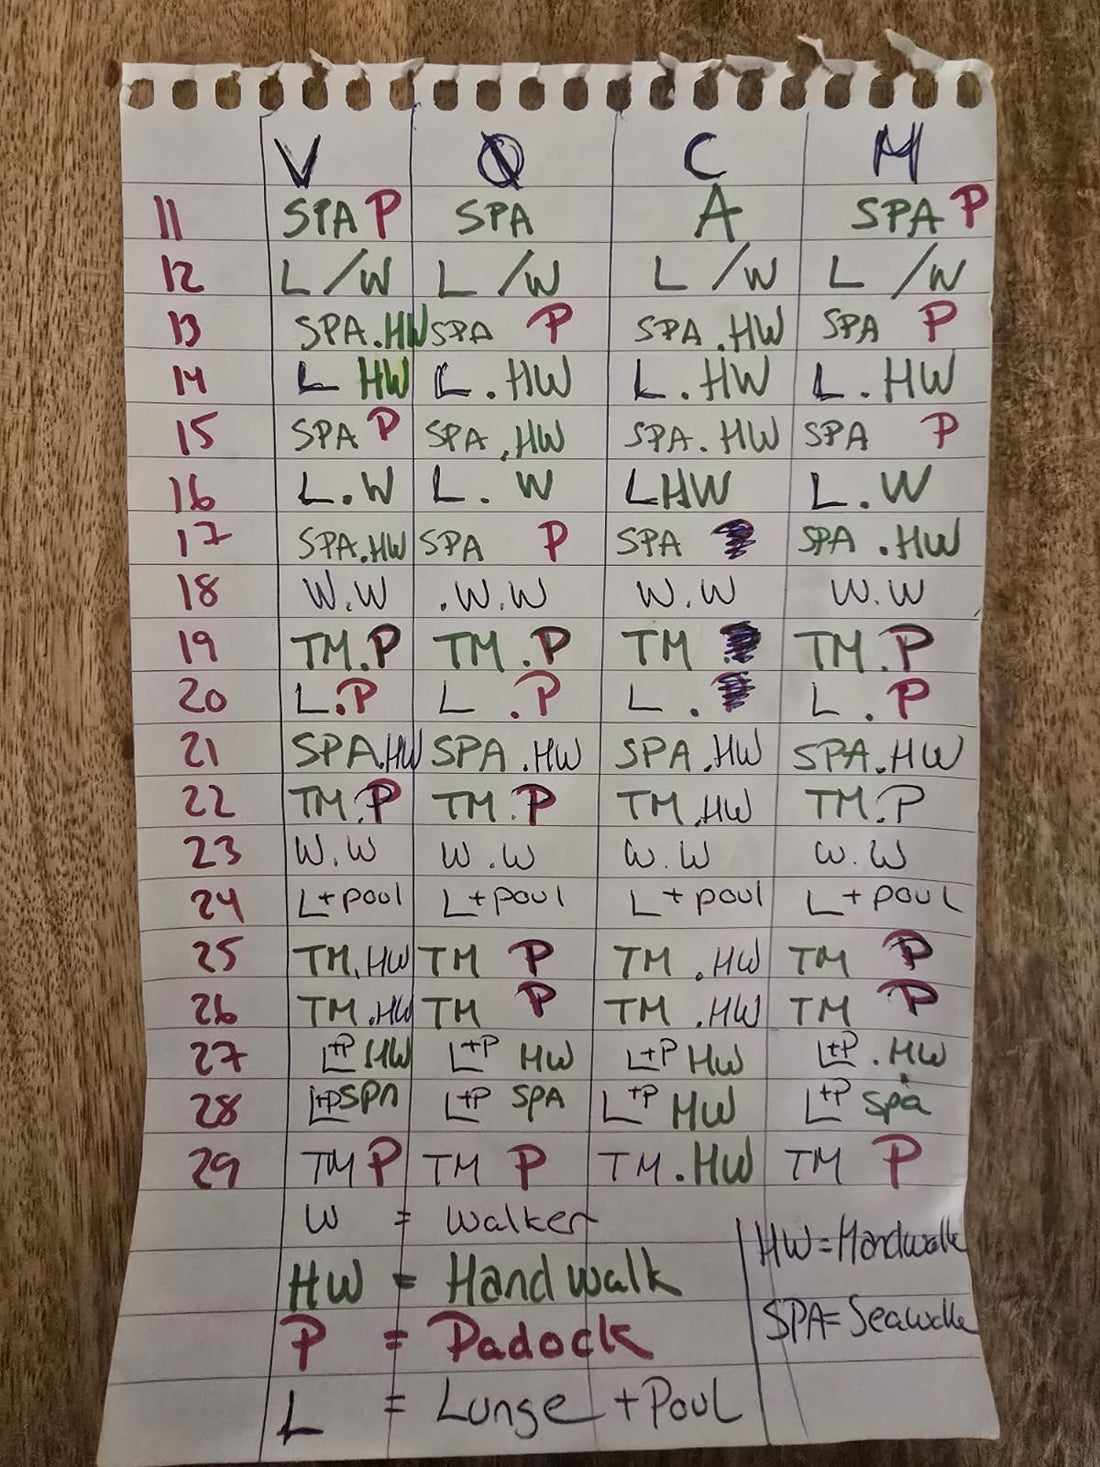 V Q C M
11 SPA P SPA A SPA P
12 L /W L /W L /W L /W
13 SPA.HW SPA P SPA.HW SPA P
14 L HW L.HW L.HW L.HW
15 SPA P SPA.HW SPA.HW SPA P
16 L.W L.W LHW L.W
17 SPA.HW SPA P SPA SPA.HW
18 W.W .W.W W.W W.W
19 TM.P TM.P TM TM.P
20 L.P L.P L. L.P
21 SPA.HW SPA.HW SPA.HW SPA.HW
22 TM.P TM.P TM.HW TM.P
23 W.W W.W W.W W.W
24 L+poul L+poul L+poul L+poul
25 TM.HW TM P TM.HW TM P
26 TM.HW TM P TM.HW TM P
27 L+P HW L+P HW L+P HW L+P.HW
28 L+P SPA L+P SPA L+P HW L+P spa
29 TM P TM P TM.HW TM P
W = Walker
HW = Handwalk
HW = Hand walk
SPA = Seawalke
P = Padock
L = Lunge + Poul